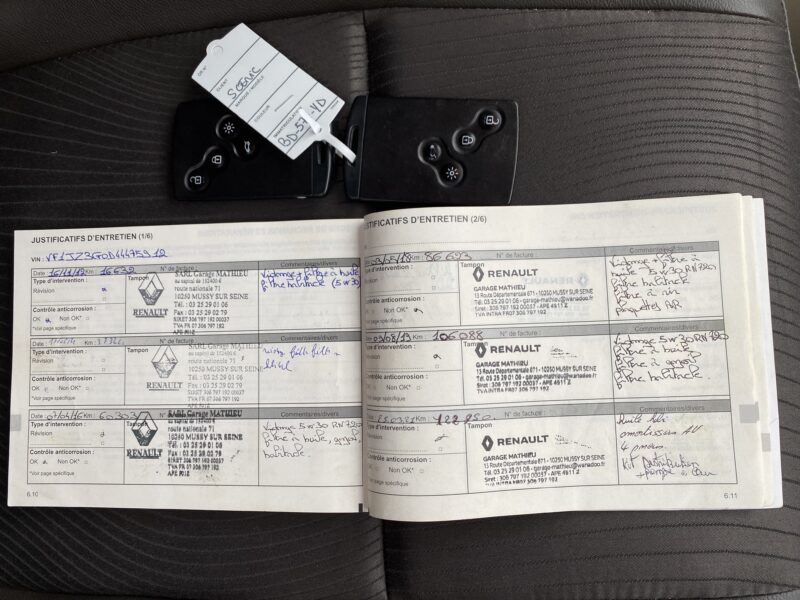 CLIENT
Scenic
MARQUE / MODELE
COULEUR
IMMATRICULATION
JUSTIFICATIFS D'ENTRETIEN (1/6)
VIN :
Date 16/11/12 Km 16632
N° de facture :
Commentaires/divers
Type d'intervention :
Révision
Contrôle anticorrosion :
OK Non OK*
*Voir page spécifique
Tampon
SARL Garage MATHIEU
au capital de 152400 €
route nationale 71
10250 MUSSY SUR SEINE
Tél : 03 25 29 01 06
Fax : 03 25 29 02 79
SIRET 306 797 192 00037
TVA FR 07 306 797 192
RENAULT
Vidange + filtre à huile
filtre habitacle (5w30)
Date Km
N° de facture :
Commentaires/divers
Type d'intervention :
Révision
Contrôle anticorrosion :
OK Non OK*
*Voir page spécifique
Tampon
SARL Garage MATHIEU
au capital de 152400 €
route nationale 71
10250 MUSSY SUR SEINE
Tél : 03 25 29 01 06
Fax : 03 25 29 02 79
RENAULT
Date 07/04/16 Km 60303
N° de facture :
Commentaires/divers
Type d'intervention :
Révision
Contrôle anticorrosion :
OK Non OK*
*Voir page spécifique
Tampon
SARL Garage MATHIEU
au capital de 152400 €
route nationale 71
10250 MUSSY SUR SEINE
Tél : 03 25 29 01 06
Fax : 03 25 29 02 79
SIRET 306 797 192 00037
TVA FR 07 306 797 192
RENAULT
Vidange 5w30 RN720
filtre à huile, gasoil
habitacle.
6.10
JUSTIFICATIFS D'ENTRETIEN (2/6)
Km : 86693
N° de facture :
Commentaires/divers
Type d'intervention :
Révision
Contrôle anticorrosion :
OK Non OK*
*Voir page spécifique
Tampon
RENAULT
GARAGE MATHIEU
13 Route Départementale 671 - 10250 MUSSY SUR SEINE
Tél. 03 25 29 01 06 - garage-mathieu@wanadoo.fr
Siret : 306 797 192 00037 - APE 4511 Z
TVA INTRA FR07 306 797 192
Vidange + filtre à
huile 5w30 RN720
filtre habitacle
filtre à air
plaquettes AR
Km : 106088
N° de facture :
Commentaires/divers
Type d'intervention :
Révision
Contrôle anticorrosion :
OK Non OK*
*Voir page spécifique
Tampon
RENAULT
GARAGE MATHIEU
13 Route Départementale 671 - 10250 MUSSY SUR SEINE
Tél. 03 25 29 01 06 - garage-mathieu@wanadoo.fr
Siret : 306 797 192 00037 - APE 4511 Z
TVA INTRA FR07 306 797 192
Vidange 5w30 RN720
filtre à huile
filtre à gasoil
filtre habitacle.
Km :
N° de facture :
Commentaires/divers
Type d'intervention :
Révision
Contrôle anticorrosion :
OK Non OK*
*Voir page spécifique
Tampon
RENAULT
GARAGE MATHIEU
13 Route Départementale 671 - 10250 MUSSY SUR SEINE
Tél. 03 25 29 01 06 - garage-mathieu@wanadoo.fr
Siret : 306 797 192 00037 - APE 4511 Z
TVA INTRA FR07 306 797 192
amortisseurs AV
4 pneus
Kit Distribution
+ pompe à eau
6.11